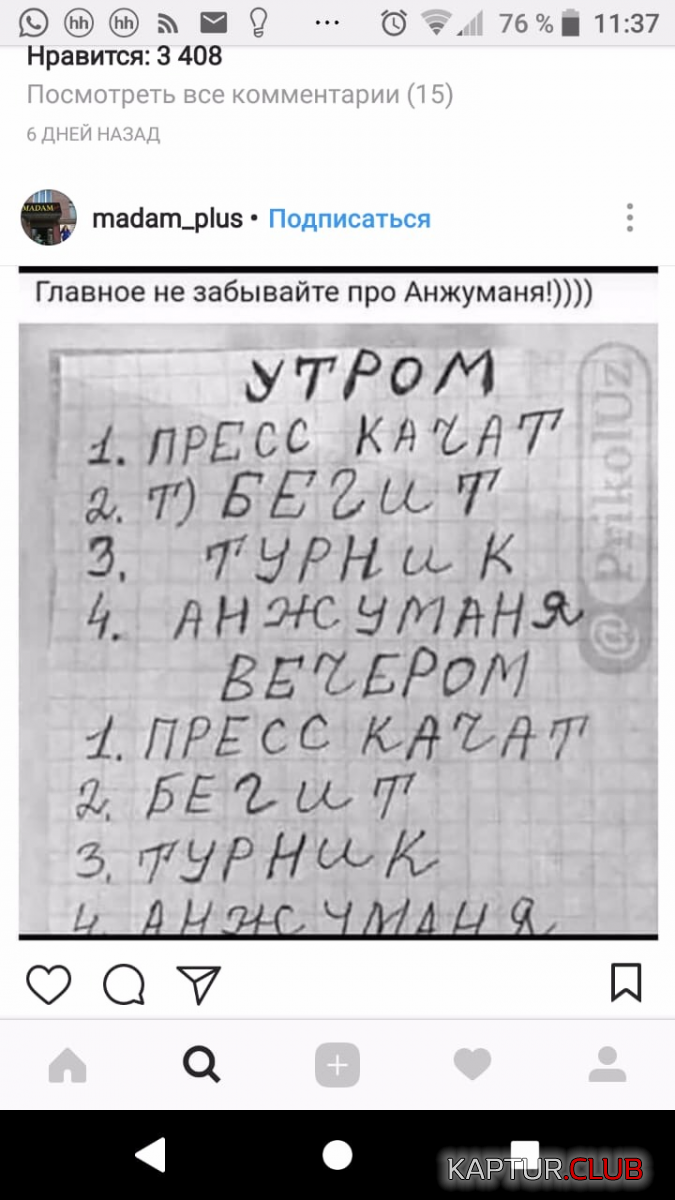 76 % 11:37
Нравится: 3 408
Посмотреть все комментарии (15)
6 ДНЕЙ НАЗАД
MADAM
madam_plus • Подписаться
Главное не забывайте про Анжуманя!))))
УТРОМ
1. ПРЕСС КАЧАТ
2. Т) БЕГИТ
3. ТУРНИК
4. АНЖУМАНЯ
ВЕЧЕРОМ
1. ПРЕСС КАЧАТ
2. БЕГИТ
3. ТУРНИК
4. АНЖУМАНЯ
@PrikolUz
KAPTUR.CLUB